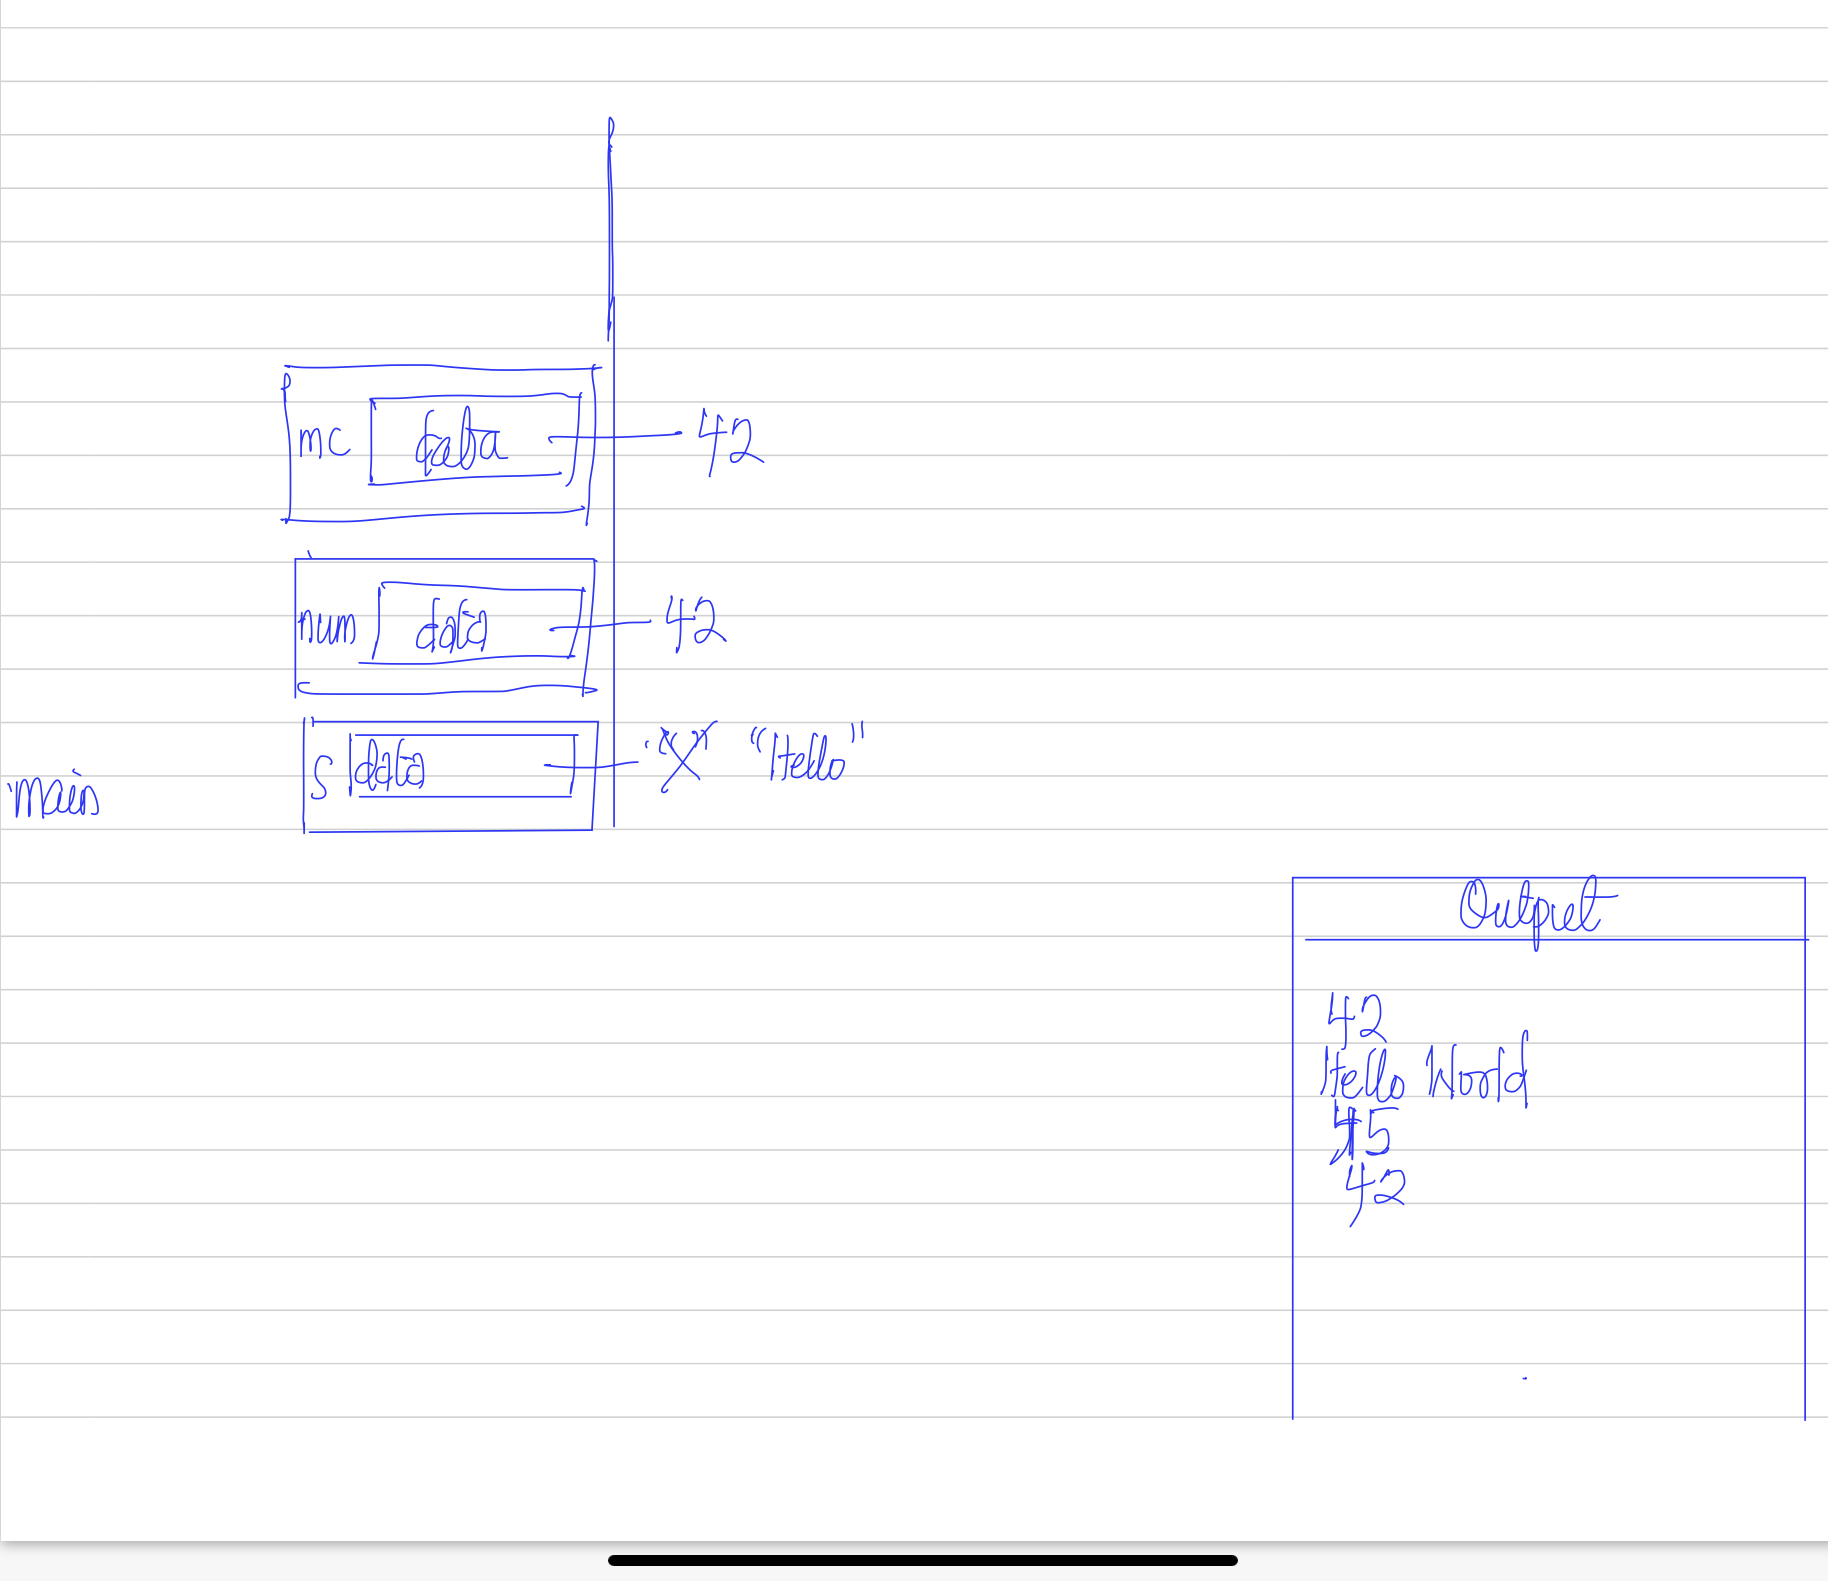 mc data 42
num data 42
s data "" "Hello"
main
Output
42
Hello World
45
42